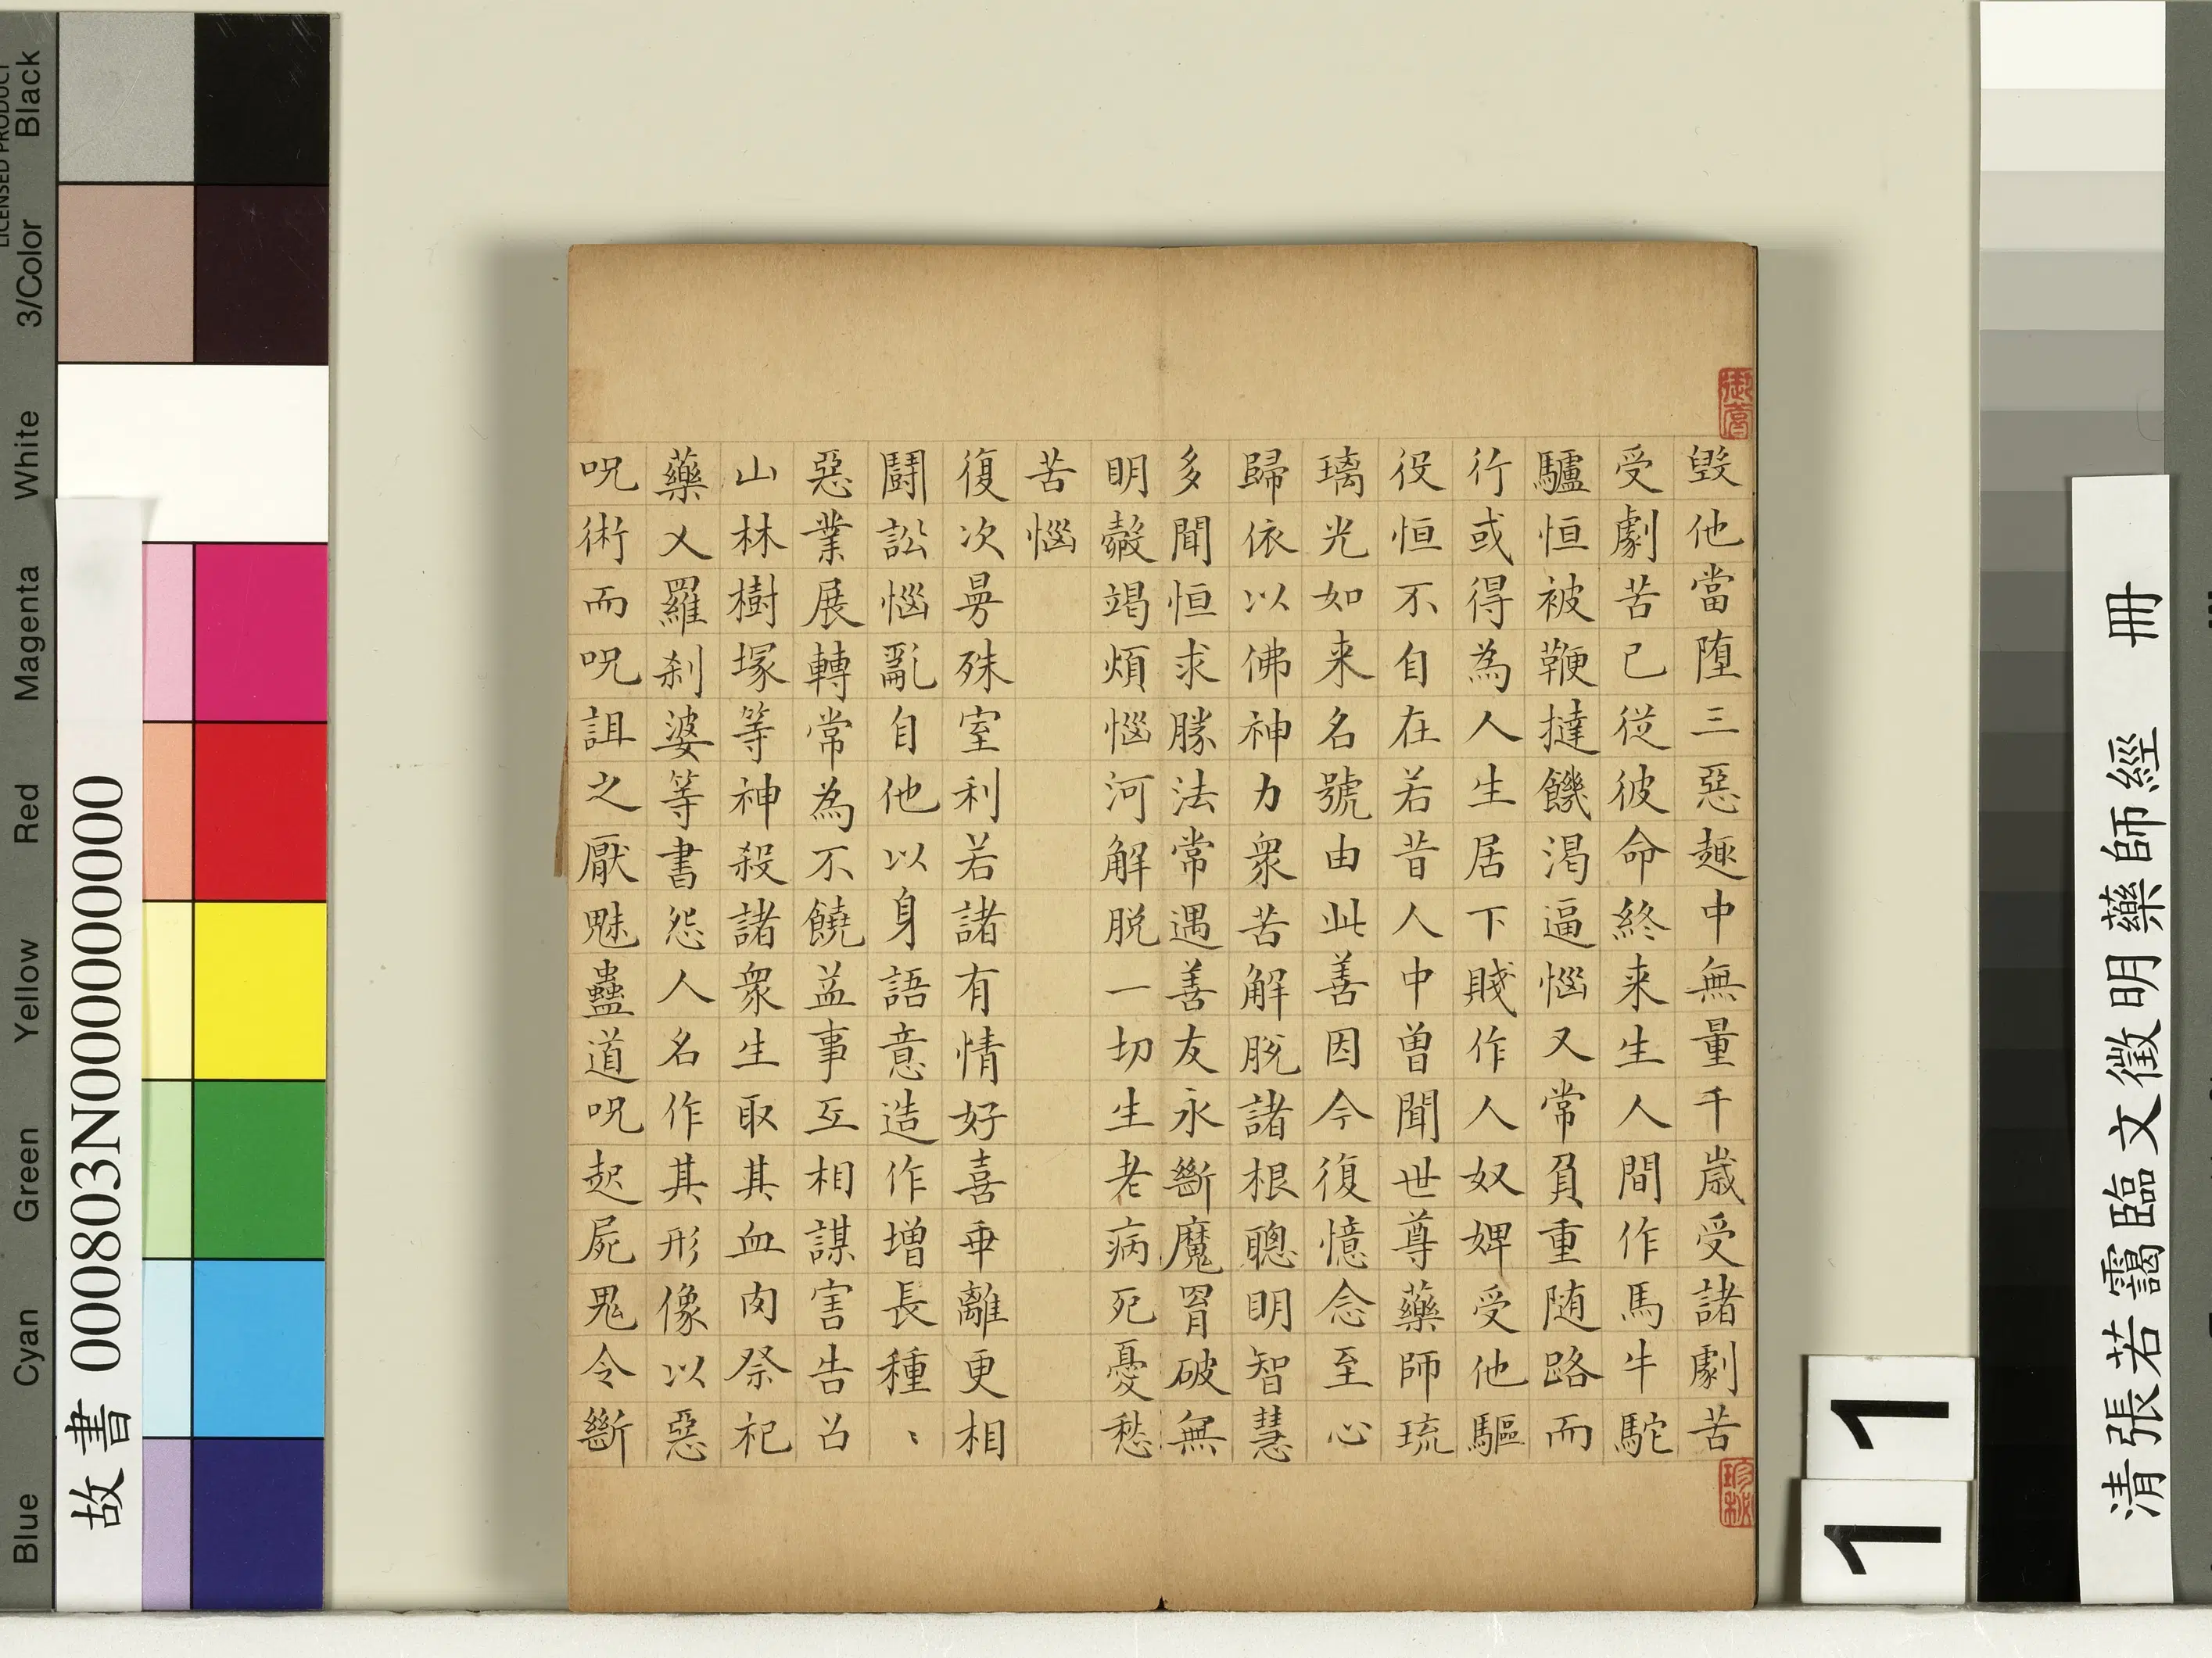 毀他當墮三惡趣中無量千歲受諸劇苦
受劇苦已從彼命終来生人間作馬牛駝
驢恒被鞭撻饑渴逼惱又常負重随路而
行或得為人生居下賤作人奴婢受他驅
役恒不自在若昔人中曽聞世尊藥師琉
璃光如来名號由此善因今復憶念至心
歸依以佛神力衆苦解脱諸根聰明智慧
多聞恒求勝法常遇善友永斷魔罥破無
明㲉竭煩惱河解脱一切生老病死憂愁
苦惱
復次曼殊室利若諸有情好喜乖離更相
鬪訟惱亂自他以身語意造作增長種、
惡業展轉常為不饒益事互相謀害告召
山林樹塚等神殺諸衆生取其血肉祭祀
藥乂羅刹婆等書怨人名作其形像以惡
呪術而呪詛之厭魅蠱道呪起屍鬼令斷
清張若靄臨文徵明藥師經 冊
11
故書 000803N000000000
Blue Cyan Green Yellow Red Magenta White 3/Color Black
LICENSED PRODUCT